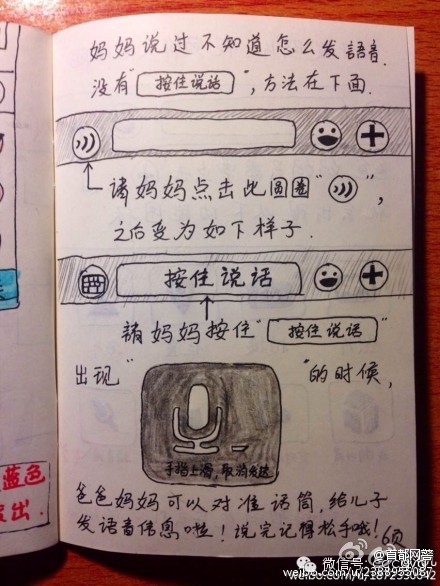 妈妈说过不知道怎么发語音.
没有"按住说话",方法在下面.
请妈妈点击此圆圈" ",
之后变为如下样子.
按住说话
請妈妈按住"按住说话"
出现" "的时候,
手指上滑,取消发送
爸爸妈妈可以对准话筒,给儿子
发语音信息啦!说完记得松手哦!
6页
蓝色
出.
微信号:
@首都网警
weibo.com/u/2387953057